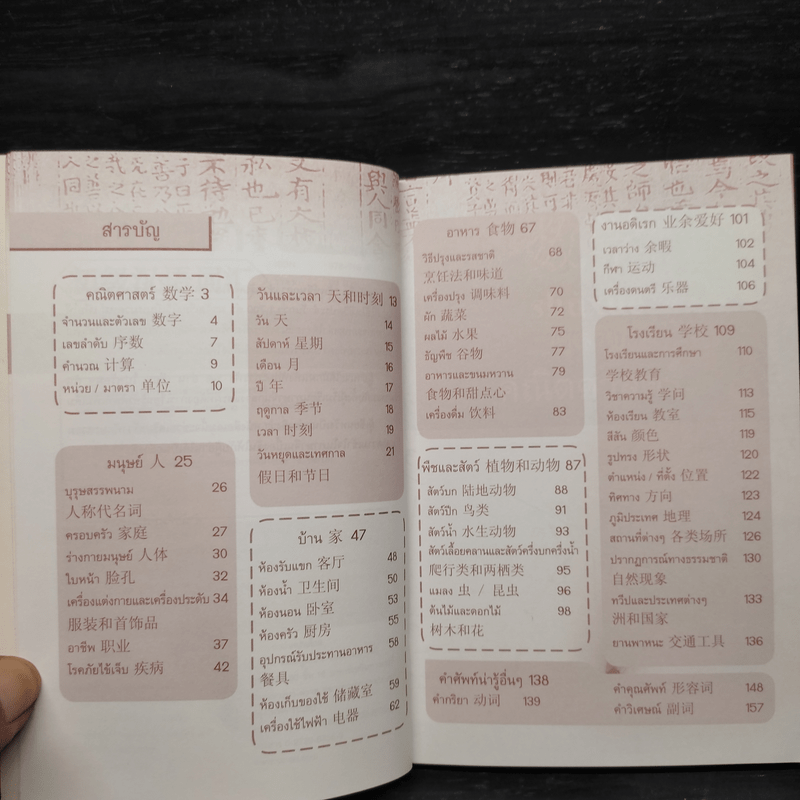 สารบัญ
คณิตศาสตร์ 数学 3
จำนวนและตัวเลข 数字 4
เลขลำดับ 序数 7
คำนวณ 计算 9
หน่วย / มาตรา 单位 10
มนุษย์ 人 25
บุรุษสรรพนาม 26
人称代名词
ครอบครัว 家庭 27
ร่างกายมนุษย์ 人体 30
ใบหน้า 脸孔 32
เครื่องแต่งกายและเครื่องประดับ 34
服装和首饰品
อาชีพ 职业 37
โรคภัยไข้เจ็บ 疾病 42
วันและเวลา 天和时刻 13
วัน 天 14
สัปดาห์ 星期 15
เดือน 月 16
ปี 年 17
ฤดูกาล 季节 18
เวลา 时刻 19
วันหยุดและเทศกาล 21
假日和节日
บ้าน 家 47
ห้องรับแขก 客厅 48
ห้องน้ำ 卫生间 50
ห้องนอน 卧室 53
ห้องครัว 厨房 55
อุปกรณ์รับประทานอาหาร 58
餐具
ห้องเก็บของใช้ 储藏室 59
เครื่องใช้ไฟฟ้า 电器 62
อาหาร 食物 67
วิธีปรุงและรสชาติ 68
烹饪法和味道
เครื่องปรุง 调味料 70
ผัก 蔬菜 72
ผลไม้ 水果 75
ธัญพืช 谷物 77
อาหารและขนมหวาน 79
食物和甜点心
เครื่องดื่ม 饮料 83
พืชและสัตว์ 植物和动物 87
สัตว์บก 陆地动物 88
สัตว์ปีก 鸟类 91
สัตว์น้ำ 水生动物 93
สัตว์เลื้อยคลานและสัตว์ครึ่งบกครึ่งน้ำ
爬行类和两栖类 95
แมลง 虫 / 昆虫 96
ต้นไม้และดอกไม้ 98
树木和花
งานอดิเรก 业余爱好 101
เวลาว่าง 余暇 102
กีฬา 运动 104
เครื่องดนตรี 乐器 106
โรงเรียน 学校 109
โรงเรียนและการศึกษา 110
学校教育
วิชาความรู้ 学问 113
ห้องเรียน 教室 115
สีสัน 颜色 119
รูปทรง 形状 120
ตำแหน่ง / ที่ตั้ง 位置 122
ทิศทาง 方向 123
ภูมิประเทศ 地理 124
สถานที่ต่างๆ 各类场所 126
ปรากฏการณ์ทางธรรมชาติ 130
自然现象
ทวีปและประเทศต่างๆ 133
洲和国家
ยานพาหนะ 交通工具 136
คำศัพท์น่ารู้อื่นๆ 138
คำกริยา 动词 139
คำคุณศัพท์ 形容词 148
คำวิเศษณ์ 副词 157